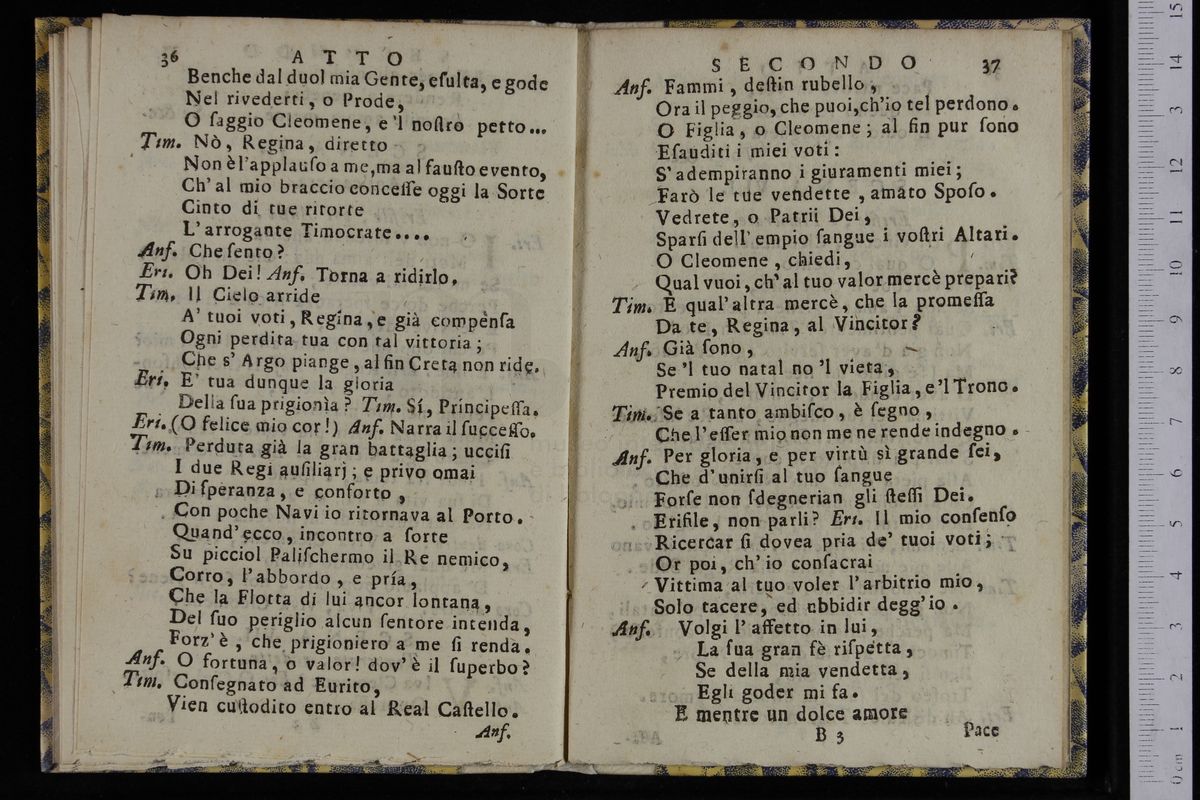 36 ATTO
Benche dal duol mia Gente, eſulta, e gode
Nel rivederti, o Prode,
O ſaggio Cleomene, e'l noſtro petto...
Tim. Nò, Regina, diretto
Non è l'applauſo a me, ma al fauſto evento,
Ch' al mio braccio conceſſe oggi la Sorte
Cinto di tue ritorte
L' arrogante Timocrate....
Anf. Che ſento?
Eri. Oh Dei! Anf. Torna a ridirlo.
Tim. Il Cielo arride
A' tuoi voti, Regina, e già compènſa
Ogni perdita tua con tal vittoria;
Che s' Argo piange, al fin Creta non ride.
Eri. E' tua dunque la gloria
Della ſua prigionìa? Tim. Sí, Principeſſa.
Eri. (O felice mio cor!) Anf. Narra il ſucceſſo.
Tim. Perduta già la gran battaglia; ucciſi
I due Regi auſiliarj; e privo omai
Di ſperanza, e conforto,
Con poche Navi io ritornava al Porto.
Quand' ecco, incontro a ſorte
Su picciol Paliſchermo il Re nemico,
Corro, l'abbordo, e pría,
Che la Flotta di lui ancor lontana,
Del ſuo periglio alcun ſentore intenda,
Forz' è, che prigioniero a me ſi renda.
Anf. O fortuna, o valor! dov' è il ſuperbo?
Tim. Conſegnato ad Eurito,
Vien cuſtodito entro al Real Caſtello.
Anf.
SECONDO 37
Anf. Fammi, deſtin rubello,
Ora il peggio, che puoi, ch'io tel perdono.
O Figlia, o Cleomene; al fin pur ſono
Eſauditi i miei voti:
S' adempiranno i giuramenti miei;
Farò le tue vendette, amato Spoſo.
Vedrete, o Patrii Dei,
Sparſi dell' empio ſangue i voſtri Altari.
O Cleomene, chiedi,
Qual vuoi, ch' al tuo valor mercè prepari?
Tim. E qual' altra mercè, che la promeſſa
Da te, Regina, al Vincitor?
Anf. Già ſono,
Se 'l tuo natal no 'l vieta,
Premio del Vincitor la Figlia, e 'l Trono.
Tim. Se a tanto ambiſco, è ſegno,
Che l'eſſer mio non me ne rende indegno.
Anf. Per gloria, e per virtù sì grande ſei,
Che d' unirſi al tuo ſangue
Forſe non ſdegnerian gli ſteſſi Dei.
Eriſile, non parli? Eri. Il mio conſenſo
Ricercar ſi dovea pria de' tuoi voti;
Or poi, ch' io conſacrai
Vittima al tuo voler l'arbitrio mio,
Solo tacere, ed ubbidir degg' io.
Anf. Volgi l' affetto in lui,
La ſua gran fè riſpetta,
Se della mia vendetta,
Egli goder mi fa.
E mentre un dolce amore
B 3 Pace
0 cm 1 2 3 4 5 6 7 8 9 10 11 12 13 14 15